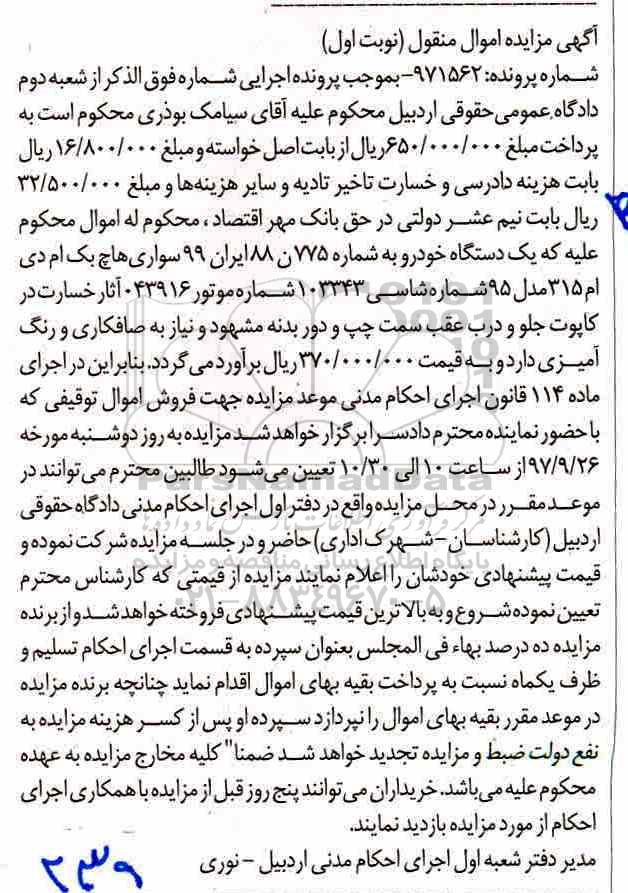 آگهی مزایده اموال منقول (نوبت اول)
شماره پرونده: ۹۷۱۵۶۲- بموجب پرونده اجرایی شماره فوق الذکر از شعبه دوم
دادگاه عمومی حقوقی اردبیل محکوم علیه آقای سیامک بوذری محکوم است به
پرداخت مبلغ ۶۵۰/۰۰۰/۰۰۰ریال از بابت اصل خواسته و مبلغ ۱۶/۸۰۰/۰۰۰ ریال
بابت هزینه دادرسی و خسارت تاخیر تادیه و سایر هزینه‌ها و مبلغ ۳۲/۵۰۰/۰۰۰
ریال بابت نیم عشر دولتی در حق بانک مهر اقتصاد، محکوم له اموال محکوم
علیه که یک دستگاه خودرو به شماره ۷۷۵ ن ۸۸ ایران ۹۹ سواری‌هاچ بک ام دی
ام ۳۱۵مدل ۹۵ شماره شاسی ۱۰۳۳۴۳ شماره موتور ۰۴۳۹۱۶ آثار خسارت در
کاپوت جلو و درب عقب سمت چپ و دور بدنه مشهود و نیاز به صافکاری و رنگ
آمیزی دارد و به قیمت ۳۷۰/۰۰۰/۰۰۰ ریال برآورد می گردد. بنابراین در اجرای
ماده ۱۱۴ قانون اجرای احکام مدنی موعد مزایده جهت فروش اموال توقیفی که
با حضور نماینده محترم دادسرا برگزار خواهد شد مزایده به روز دوشنبه مورخه
۹۷/۹/۲۶ از ساعت ۱۰ الی ۱۰/۳۰ تعیین می‌شود طالبین محترم می توانند در
موعد مقرر در محل مزایده واقع در دفتر اول اجرای احکام مدنی دادگاه حقوقی
اردبیل (کارشناسان- شهرک اداری) حاضر و در جلسه مزایده شرکت نموده و
قیمت پیشنهادی خودشان را اعلام نمایند مزایده از قیمتی که کارشناس محترم
تعیین نموده شروع و به بالاترین قیمت پیشنهادی فروخته خواهد شد و از برنده
مزایده ده درصد بهاء فی المجلس بعنوان سپرده به قسمت اجرای احکام تسلیم و
ظرف یکماه نسبت به پرداخت بقیه بهای اموال اقدام نماید چنانچه برنده مزایده
در موعد مقرر بقیه بهای اموال را نپردازد سپرده او پس از کسر هزینه مزایده به
نفع دولت ضبط و مزایده تجدید خواهد شد ضمنا" کلیه مخارج مزایده به عهده
محکوم علیه می‌باشد. خریداران می‌توانند پنج روز قبل از مزایده با همکاری اجرای
احکام از مورد مزایده بازدید نمایند.
مدیر دفتر شعبه اول اجرای احکام مدنی اردبیل - نوری
ParsNamadData
پایگاه اطلاع رسانی مناقصه و مزایده
۰۲۱-۸۸۳۴۹۶۷۰-۵